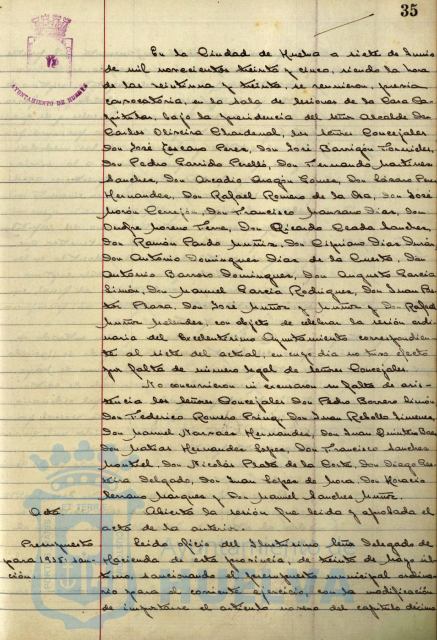 35
AYUNTAMIENTO DE HUELVA
En la Ciudad de Huelva a siete de Junio
de mil novecientos treinta y cinco, siendo la hora
de las veintiuna y treinta, se reunieron, previa
convocatoria, en la Sala de Sesiones de la Casa Ca-
pitular, bajo la presidencia del Señor Alcalde Don
Carlos Oliveira Chardenal, los Señores Concejales
Don José Toscano Perez, Don José Barrigón Fornieles,
Don Pedro Garrido Perelló, Don Fernando Martinez
Sanchez, Don Arcadio Aragón Gomez, Don Lázaro
Hernandez, Don Rafael Romero de la Don José
Morón Cerejón, Don Francisco Manzano Diaz, Don
Onofre Moreno Don Ricardo Sanchez,
Don Ramón Pardo Muñiz, Don Cipriano Diaz Durán,
Don Antonio Dominguez Diaz de la Don
Antonio Barroso Dominguez, Don Augusto García
Simón, Don Manuel Garcia Rodriguez, Don Juan
Plaza, Don José Muñoz y Muñoz y Don Rafael
Muñoz con objeto de celebrar la sesión ordi-
naria del Excelentísimo Ayuntamiento correspondien-
te al siete del actual, en cuyo día no tuvo efecto
por falta de número legal de Señores Concejales.
No concurrieron ni excusaron su falta de asis-
tencia los Señores Concejales Don Pedro Borrero Limón,
Don Federico Romero Don Juan Rebollo Jimenez,
Don Manuel Narvaez Hernandez, Don Juan Quintero Baez,
Don Matias Hernandez Lopez, Don Francisco Sanchez
Montiel, Don Nicolás Plata de la Don Diego
Delgado, Don Juan Lopez de Mora, Don Horacio
Serrano Marquez y Don Manuel Sanchez Muñoz.
Acta Abierta la sesión fue leída y aprobada el
acta de la anterior.
Presupuesto Leido oficio del Ilustrísimo Señor Delegado de
para 1935: san- Hacienda de esta provincia, de treinta de Mayo úl-
ción. timo, sancionando el presupuesto municipal ordina-
rio para el corriente ejercicio, con la modificación
de importarse el artículo noveno del capítulo décimo